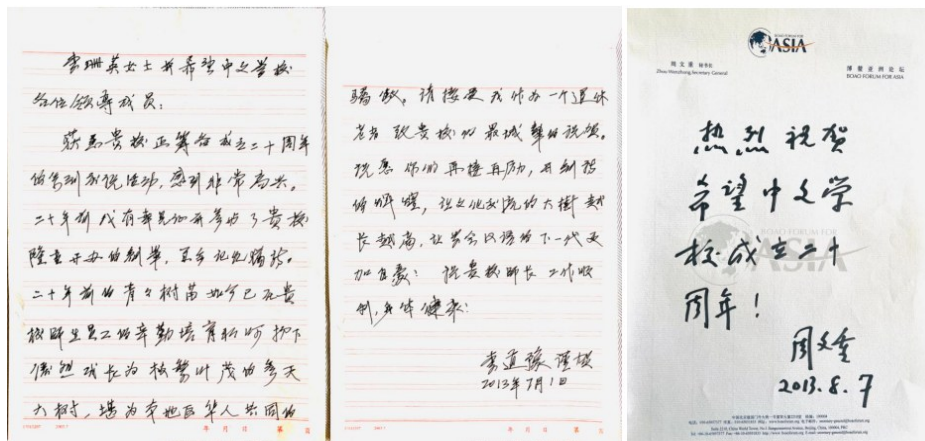 李珊英女士并希望中文学校
各位领导成员：
获悉贵校正筹备成立二十周年
的系列庆祝活动，感到非常高兴。
二十年前我有幸见证并参与了贵校
隆重开办的创举，至今记忆犹新。
二十年前的青青树苗如今已在贵
校师生员工的辛勤培育和呵护下
成长为枝繁叶茂的参天
大树，堪为本地区华人共同的
骄傲。请接受我作为一个退休
老者 致贵校的最诚挚的祝贺。
祝愿你们再接再励，再创新
的辉煌，让文化交流的大树越
长越高，让学会汉语的下一代更
加自豪！祝贵校师长工作顺
利，身体健康！
李道豫 谨贺
2013年7月1日
年 月 日 第 页
年 月 日 第 页
BOAO FORUM FOR
ASIA
周文重 秘书长
Zhou Wenzhong Secretary General
博鳌亚洲论坛
BOAO FORUM FOR ASIA
热烈祝贺
希望中文学
校成立二十
周年！
周文重
2013.8.7
BOAO FORUM FOR
ASIA